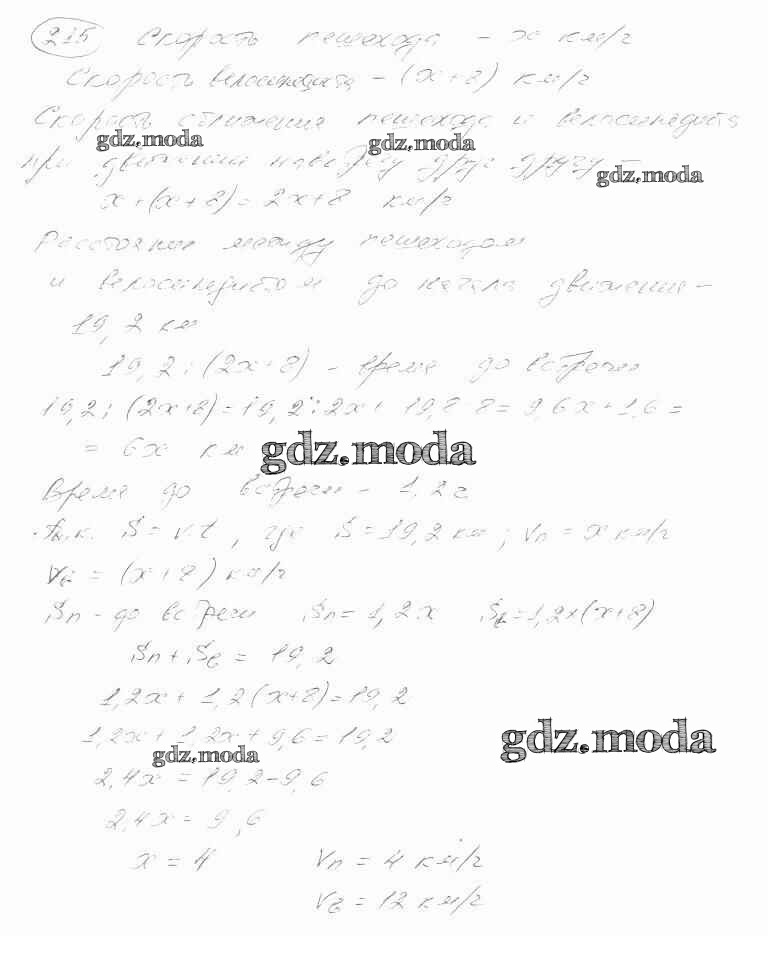 215 Скорость пешехода - x км/г
Скорость велосипедиста - (x+8) км/г
Скорость сближения пешехода и велосипедиста
gdz.moda
gdz.moda
при движении навстречу друг другу -
gdz.moda
x+(x+8)=2x+8 км/г
Расстояние между пешеходом
и велосипедистом до начала движения -
19,2 км
19,2:(2x+8) - время до встречи
19,2:(2x+8)=19,2:2x+ 19,8:8= 9,6x+1,6=
= 6x км
gdz.moda
Время до встречи - 1,2 г
т.к. S = v.t, где S=19,2 км; Vп = x км/г
Vв = (x+8) км/г
Sп - до встречи Sп= 1,2x Sв=1,2×(x+8)
Sп+Sв = 19,2
1,2x + 1,2(x+8)=19,2
1,2x+ 1,2x+ 9,6=19,2
gdz.moda
gdz.moda
2,4x = 19,2-9,6
2,4x= 9,6
x = 4 Vп = 4 км/г
Vв = 12 км/г